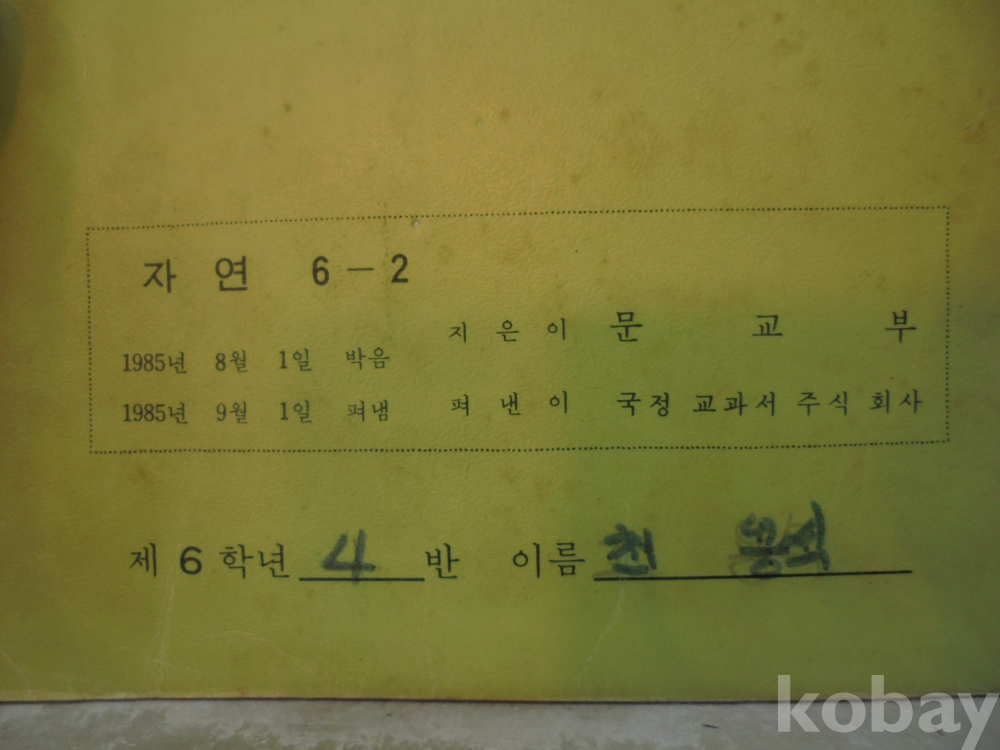 자 연 6-2
1985년 8월 1일 박음
1985년 9월 1일 펴냄
지 은 이 문 교 부
펴 낸 이 국정 교과서 주식 회사
제 6 학년 4 반 이름
kobay